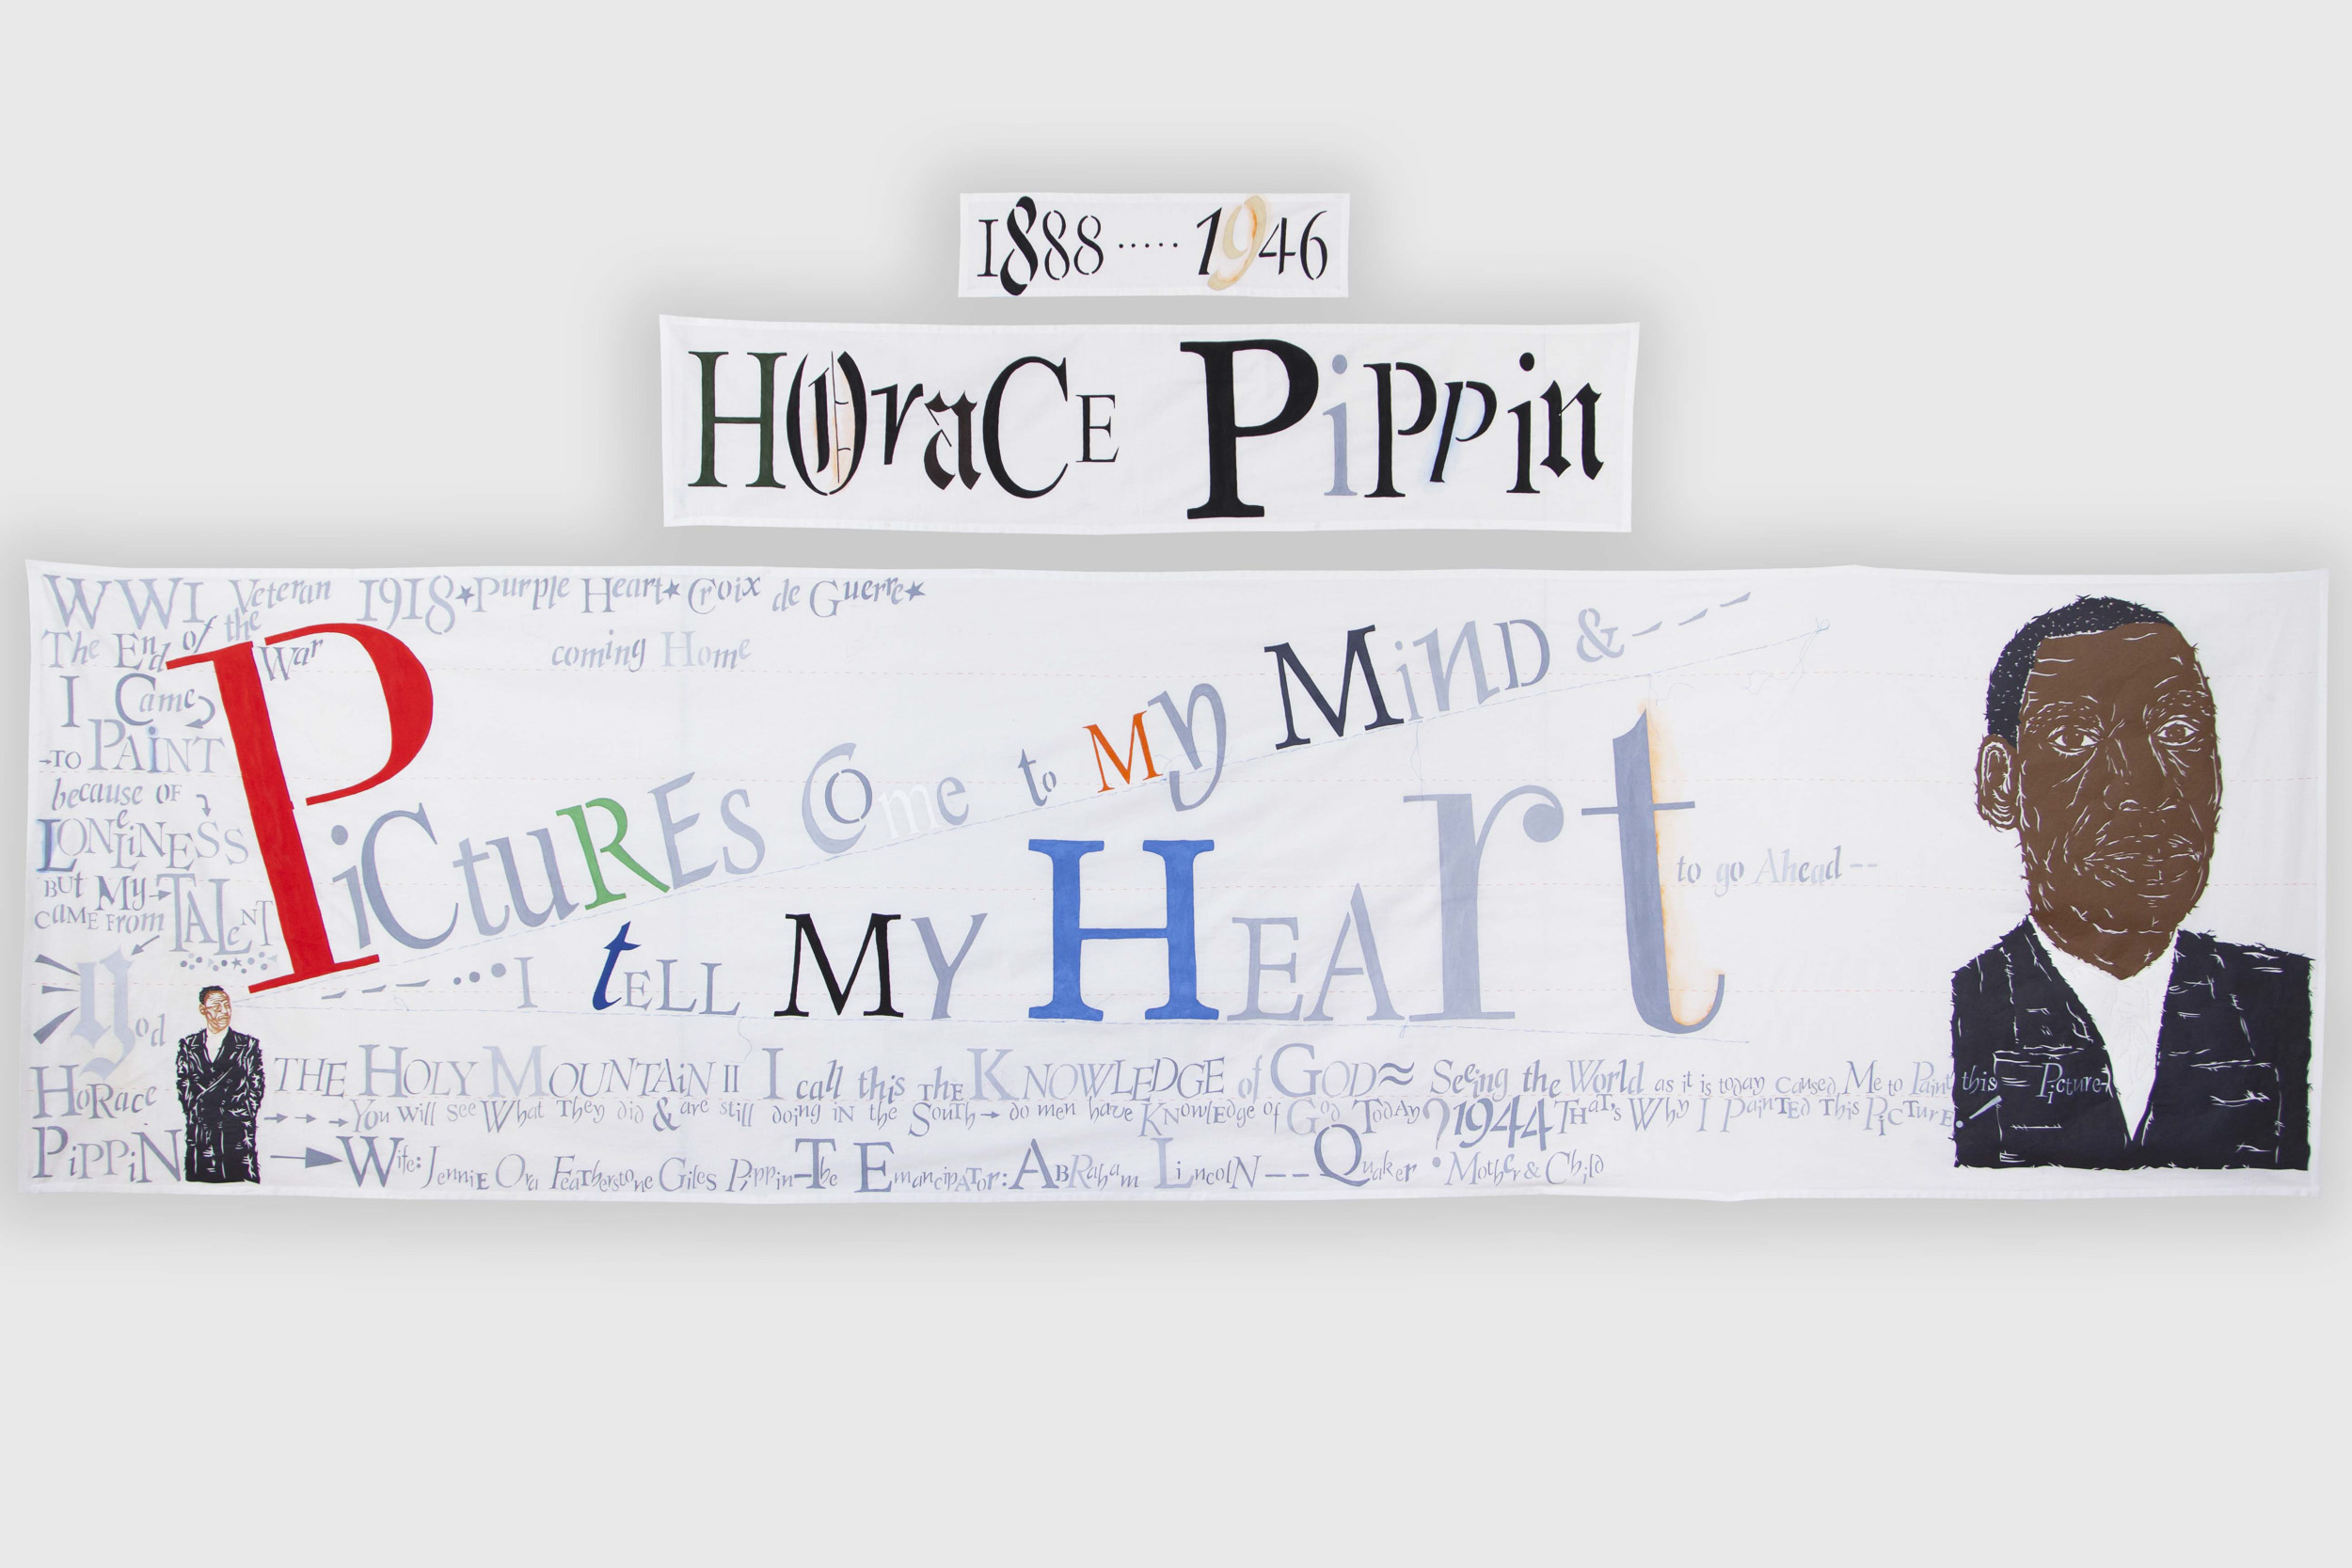 1888 ..... 1946
HOraCE PiPPin
WWI Veteran 1918★Purple Heart★Croix de Guerre★
The End of the War
coming Home
I Came
-TO PAiNT
because OF
LONLiNESS
e
BUt My→TALeNT
CAME From
God
HoRace
PiPPiN
PiCtuREs COme to My MinD &---
---...I tELL MY HEArt
to go Ahead--
THE HOLY MOUNTAiN II I call this THE KNOWLEDGE of GOD≈ Seeing the World as it is today caused Me to Paint this Picture
→→→You will see What They did & are still doing iN the South→ do men have KNowlEdge of God TodAy? 1944 THaT's Why I PainTED This PiCTurE.
→Wife: JenniE Ora FeaTherstone Giles Pippin–The EmancipATor: ABRaham LincolN-- Quaker •Mother & Child